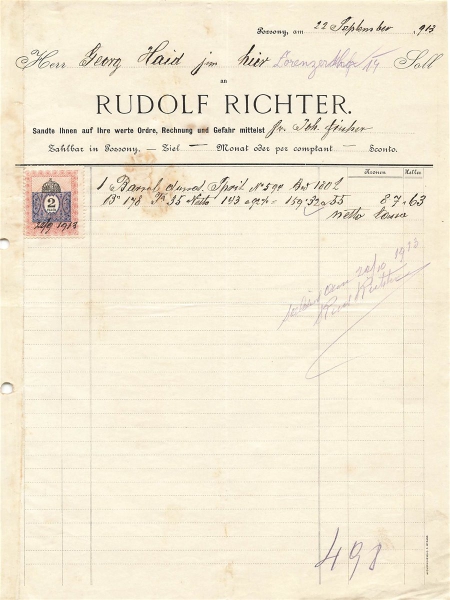 Pozsony, am 22 September 1913
Herr Georg Haid jun hier Lorenzerthor 14 Soll
an
RUDOLF RICHTER.
Sandte Ihnen auf Ihre werte Ordre, Rechnung und Gefahr mittelst fr. Joh. Fischer
Zahlbar in Pozsony, — Ziel — Monat oder per comptant — Sconto.
Kronen Heller
1 Barrel Spril N° 594 1802
B° 178 Ta 35 Netto 143 159.32 a 55 87.63
Netto Cassa
2
20/10 1913
Rud Richter
498